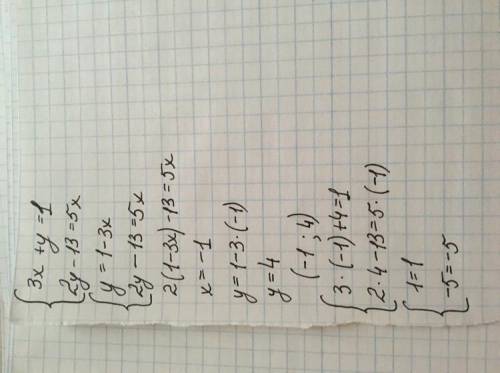 { 3x + y = 1
2y - 13 = 5x
{ y = 1 - 3x
2y - 13 = 5x
2(1 - 3x) - 13 = 5x
x = -1
y = 1 - 3 · (-1)
y = 4
(-1 ; 4)
{ 3 · (-1) + 4 = 1
2 · 4 - 13 = 5 · (-1)
{ 1 = 1
-5 = -5